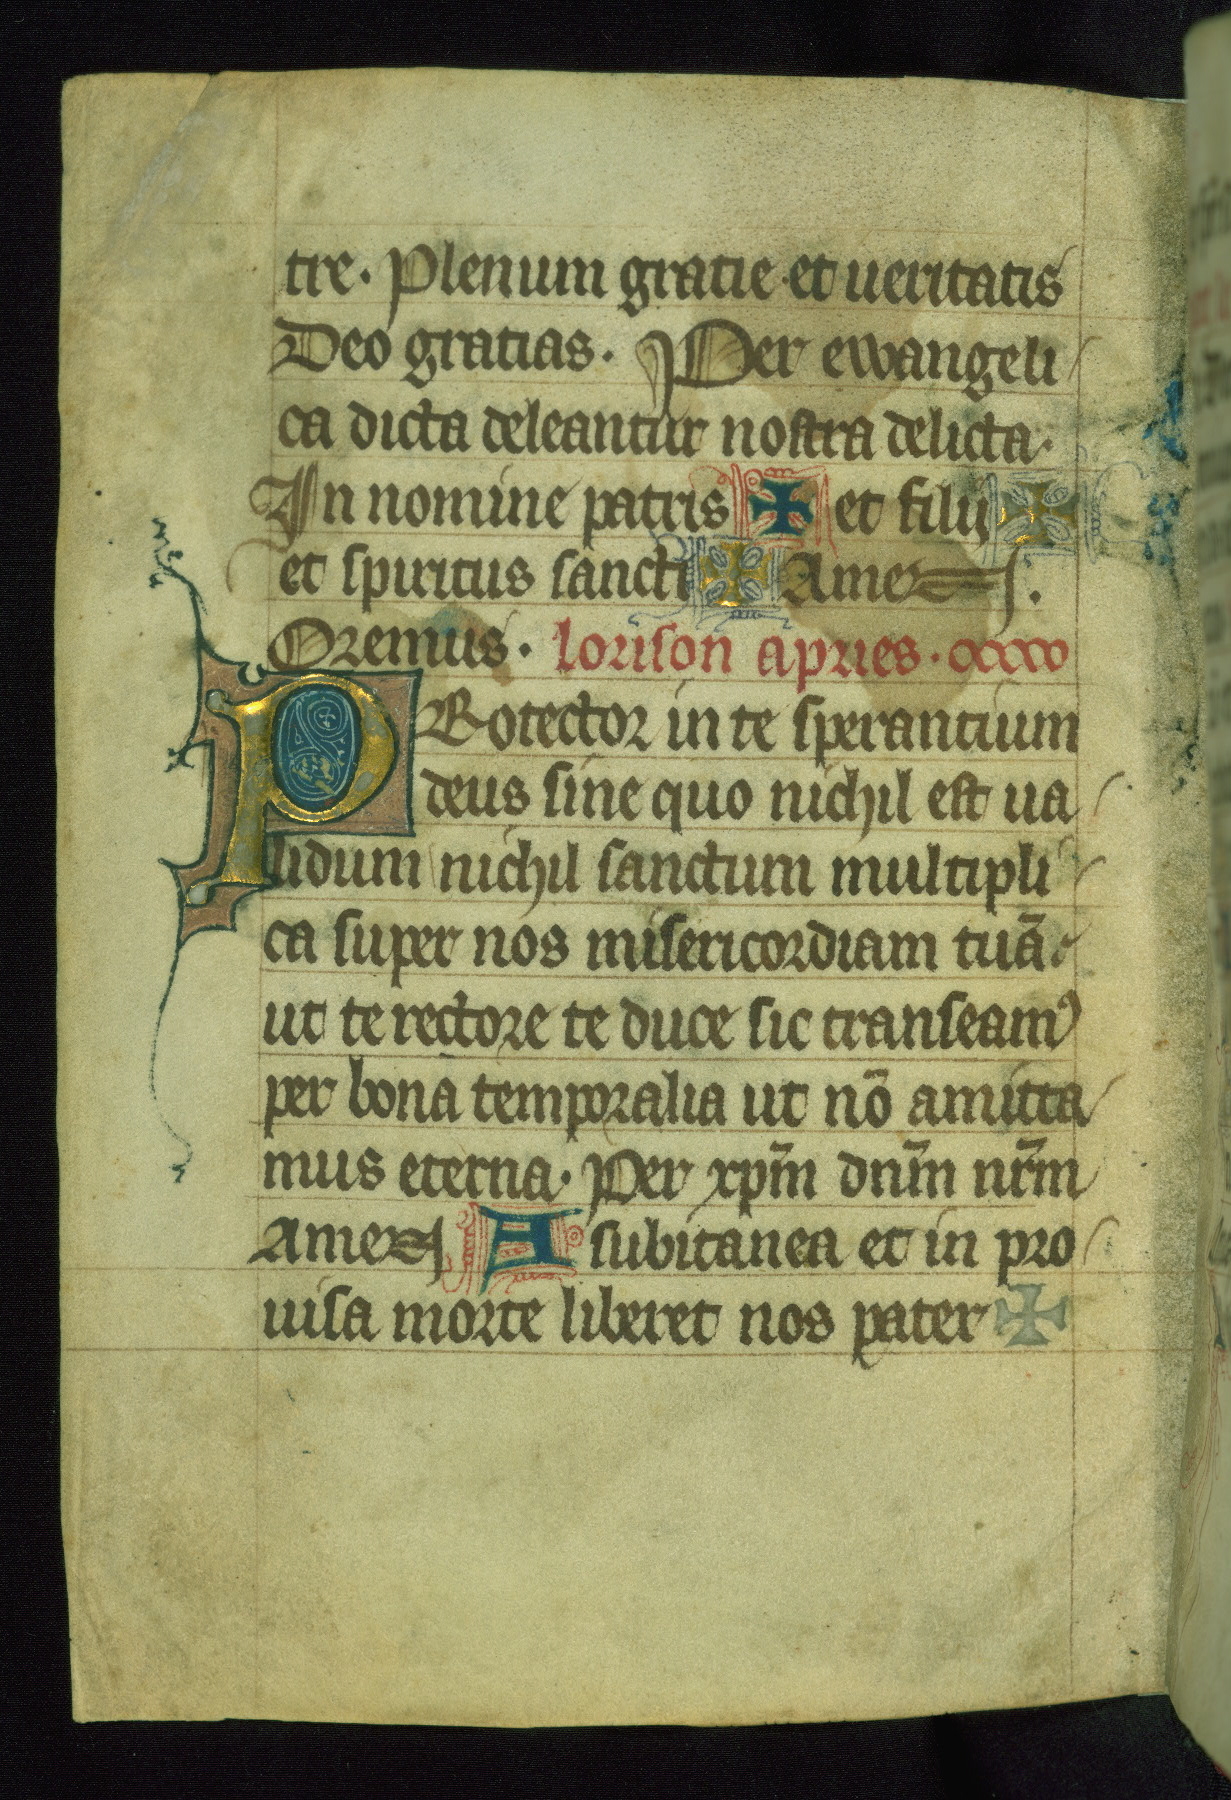 tre. Plenum gratie et ueritatis
Deo gratias. Per ewangeli
ca dicta deleantur nostra delicta.
In nomine patris ✠ et filij ✠
et spiritus sancti ✠ Amen.
Oremus. lorison apries.
PRotector in te sperantium
deus sine quo nichil est ua
lidum nichil sanctum multipli
ca super nos misericordiam tuā
ut te rectore te duce sic transeamꝰ
per bona temporalia ut nō amitta
mus eterna. Per xp̄m dn̄m nr̄m
Amen A subitanea et in pro
uisa morte liberet nos pater ✠